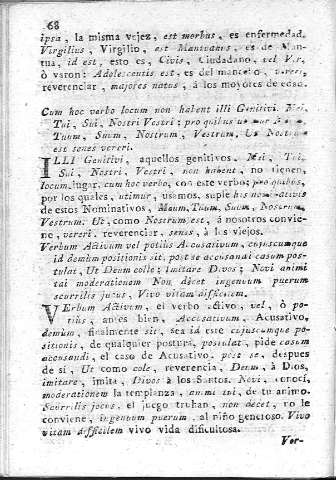 68
ipsa, la misma vejez, est morbus, es enfermedad.
Virgilius, Virgilio, est Mantuanus, es de Man-
tua, id est, esto es, Civis, Ciudadano, vel Vir,
ò varon: Adolescentis est, es del mancebo, vereri,
reverenciar, majores natus, à los mayores de edad.
Cum hoc verbo locum non habent illi Genitivi. Mei,
Tui, Sui, Nostri Vestri; pro quibus
Tuum, Suum, Nostrum, Vestrum, Ut Nostrum
est senes vereri.
ILLI Genitivi, aquellos genitivos, Mei, Tui,
Sui, Nostri, Vestri, non habent, no tienen,
locum, lugar, cum hoc verbo, con este verbo; pro quibus,
por los quales, utimur, usamos, suple his nominativis
de estos Nominativos, Meum, Tuum, Suum, Nostrum,
Vestrum. Ut, como Nostrum est, à nosotros convie-
ne, vereri, reverenciar, senes, à los viejos.
Verbum Activum vel potius Accusativum, cujuscumque
id demùm positionis sit, post se accusandi casum pos-
tulat, Ut Deum colle; Imitare Divos; Novi animi
tui moderationem Non decet ingenuum puerum
scurrilis jocus, Vivo vitam difficilem.
VErbum Activum, el verbo activo, vel, ò po-
tius, antes bien, Accusativum, Acusativo,
demùm, finalmente sit, sea id este cujuscumque po-
sitionis, de qualquier postura, postulat, pide casum
accusandi, el caso de Acusativo. post se, despues
de sì, Ut como cole, reverencia, Deum, à Dios,
imitare, imita, Divos à los Santos. Novi, conocì,
moderationem la templanza, animi tui, de tu animo.
Scurrilis jocus, el juego truhan, non decet, no le
conviene, ingenuum puerum, al niño generoso. Vivo
vitam difficilem vivo vida dificultosa.
Ver-